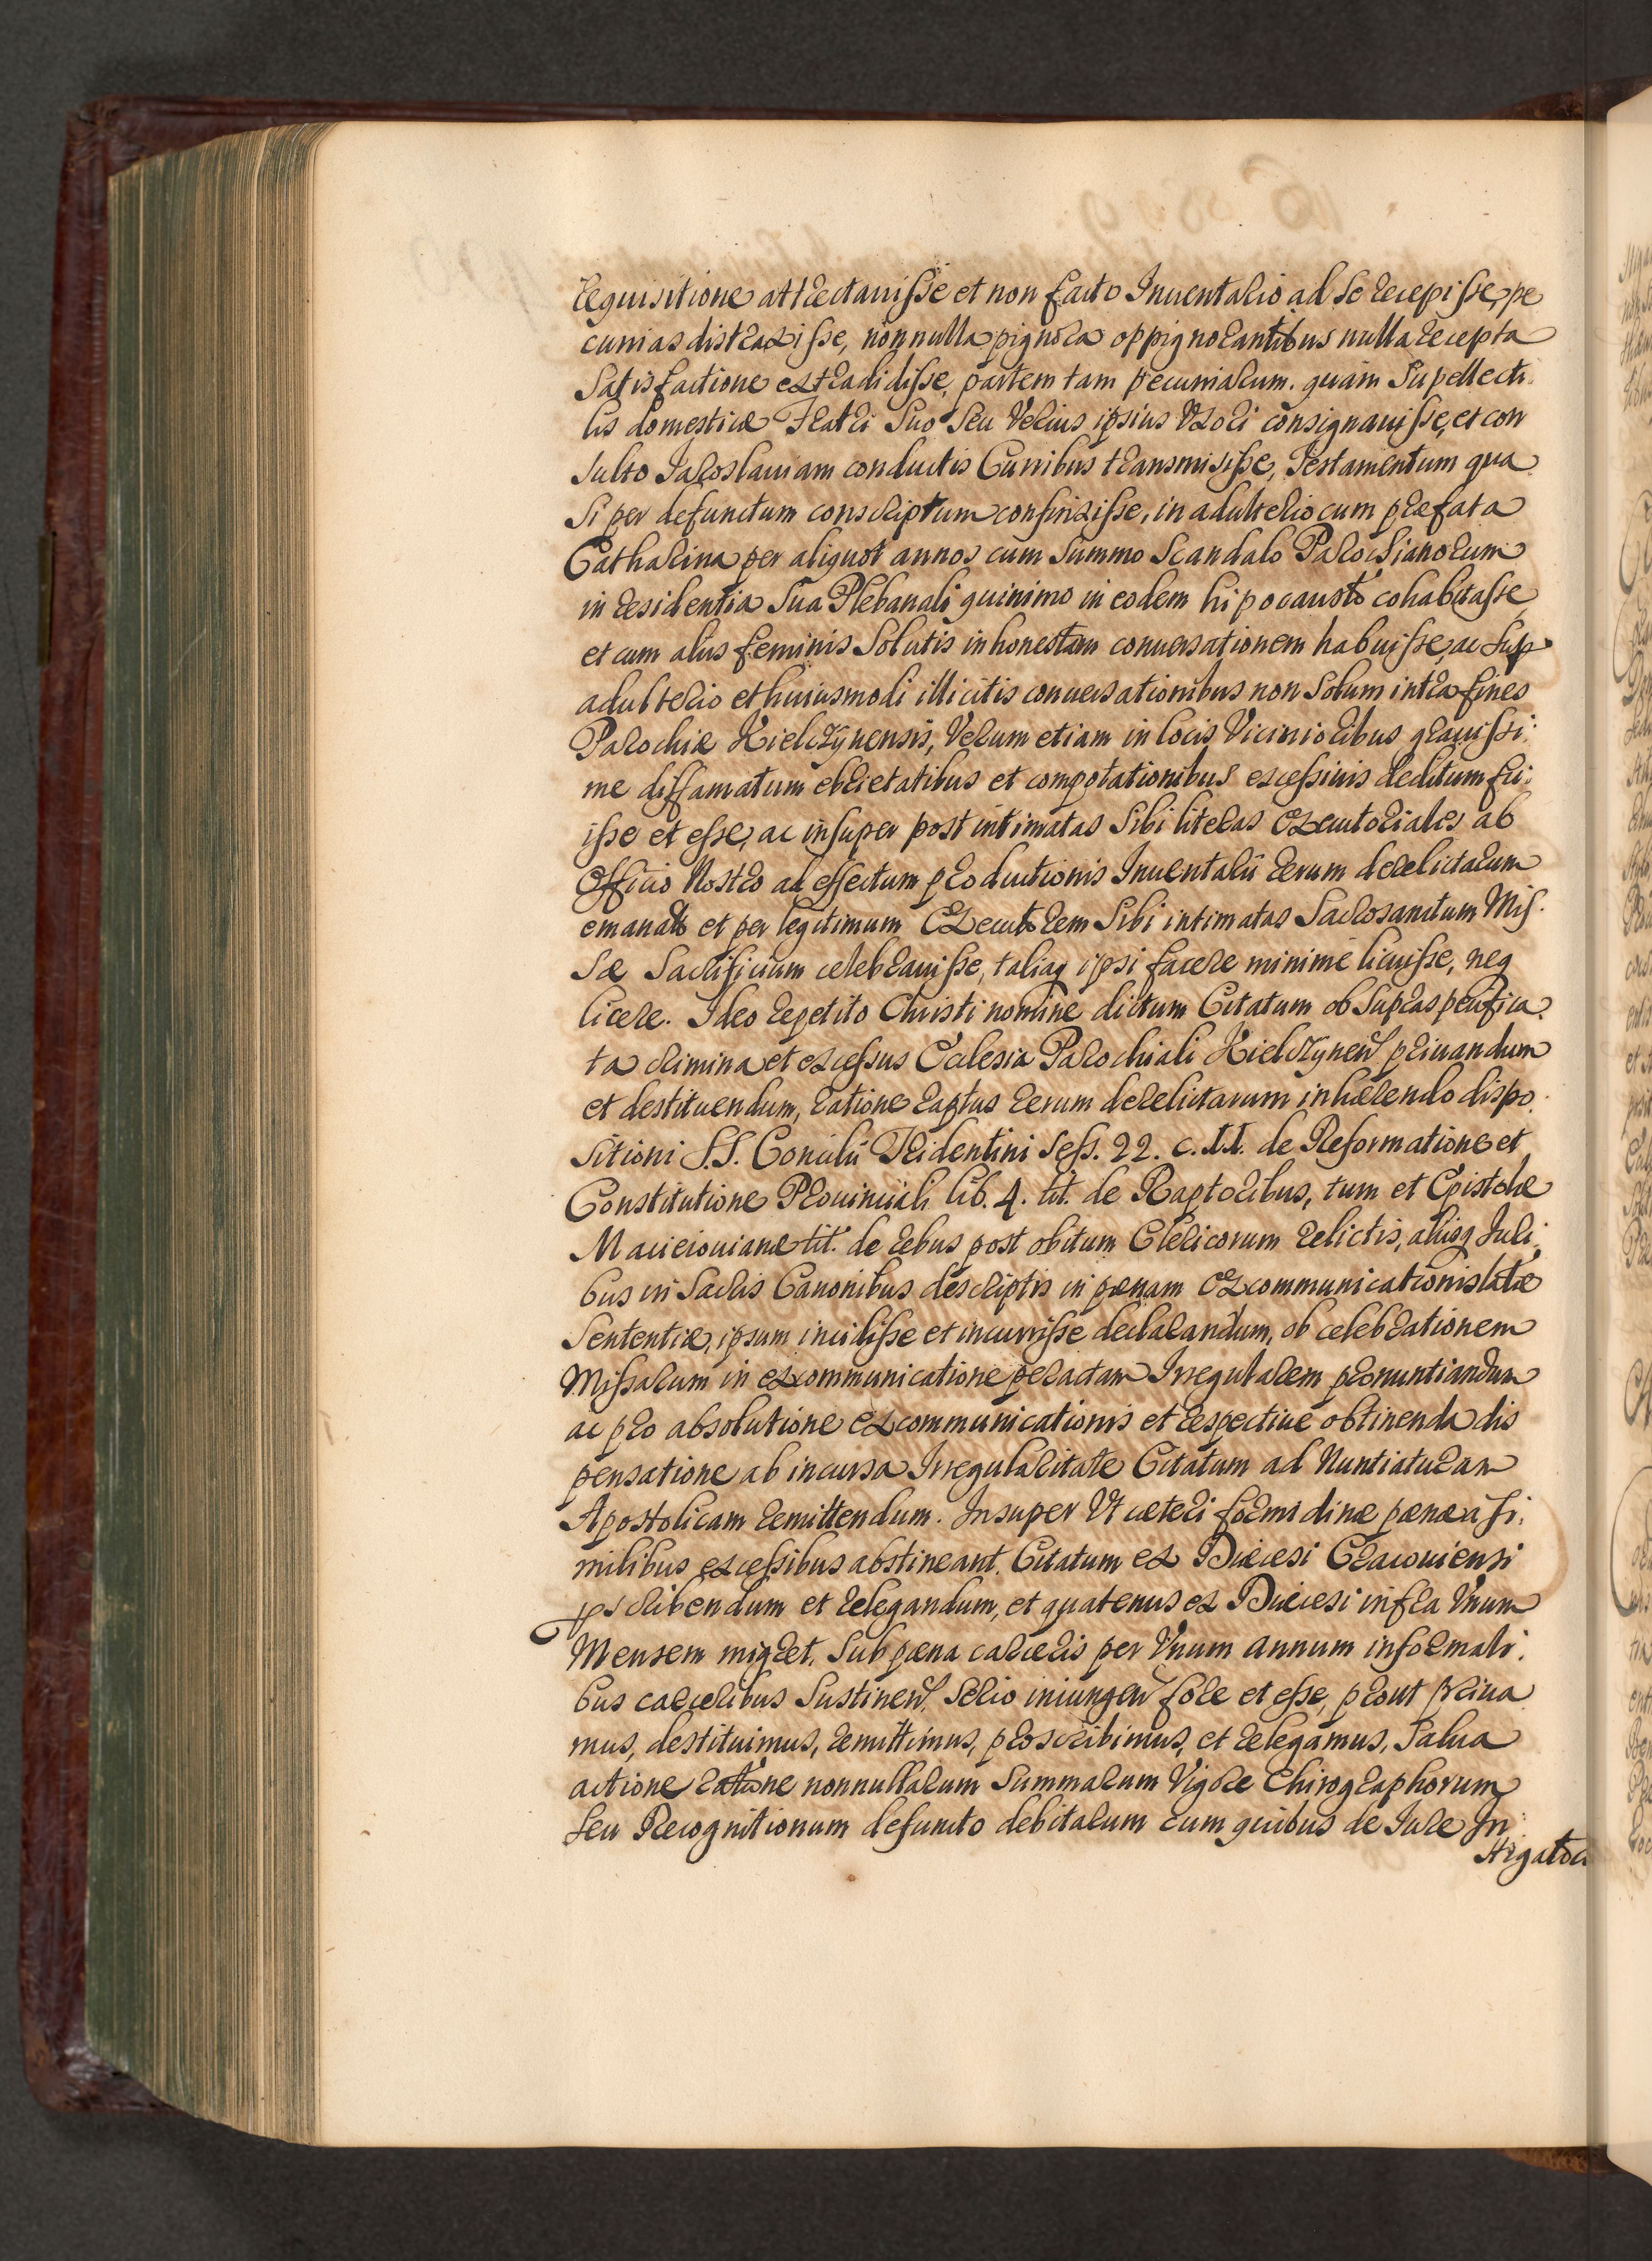 requisitione attrectavisse et non facto Inventario ad se recepisse, pe
cunias distraxisse, nonnulla pignora oppignorantibus nulla recepta
Satisfactione extradidisse, partem tam pecuniarum. quam Supellecti
lis domesticæ Fratri Suo Seu Verius ipsius Vxori consignauisse, et con
sulto Jaroslauiam conductis Curribus transmisisse, Testamentum qua
Si per defunctum conscriptum confinxisse, in adulterio cum præfata
Catharina per aliquot annos cum Summo Scandalo Parochianorum
in residentia Sua Plebanali quinimo in eodem hipocausto cohabitasse
et cum aliis feminis Solutis inhonestam conuersationem habuisse, ac Sup
adulterio et huiusmodi illicitis conuersationibus non Solum intra fines
Parochiæ Kielczÿnensis, Verum etiam in locis Vicinioribus grauissi:
me diffamatum ebrietatibus et compotationibus excessiuis deditum fu:
isse et esse, ac insuper post intimatas Sibi literas Executoriales ab
Officio Nostro ad effectum productionis Inuentarii rerum derelictarum
emanats et per legitimum Executorem Sibi intimatas Sacrosanctum Mis
Sæ Sacrificium celebrauisse, taliaq ipsi facere minime licuisse, neq
licere. Ideo repetito Christi nomine dictum Citatum ob Supraspecifica
ta crimina et excessus Ecclesia Parochiali Kielczynen priuandum
et destituendum, ratione raptus rerum derelictarum inhærendo dispo
sitioni S.S. Concilii Tridentini Sess. 22. c. II. de Reformatione et
Constitutione Prouinciali lib. 4. tit. de Raptoribus, tum et Epistolæ
Macieiouianæ tit. de rebus post obitum Clericorum relictis, aliisq Juri
bus in Sacris Canonibus descriptis in pænam excommunicationis latæ
Sententiæ, ipsum incidisse et incurrisse declarandum, ob celebrationem
Missarum in excommunicatione peractam Irregularem pronuntiandum
ac pro absolutione excommunicationis et respectiue obtinenda dis
pensatione ab incursa Irregularitate Citatum ad Nuntiaturam
Apostolicam remittendum. Insuper Vt cæteri formidine pænæ a si:
milibus excessibus abstineant. Citatum ex Diæcesi Cracouiensi
pscribendum et relegandum, et quatenus ex Diæcesi infra Vnum
Mensem migret. Sub pæna carceris per Vnum annum in formali:
bus carceribus Sustinen, Serio iniungen fore et esse, prout priua
mus, destituimus, remittimus, proscribimus, et relegamus, Salua
actione ratione nonnullarum Summarum Vigore Chirographorum
Seu Recognitionum defuncto debitarum cum quibus de Jure In
stigator